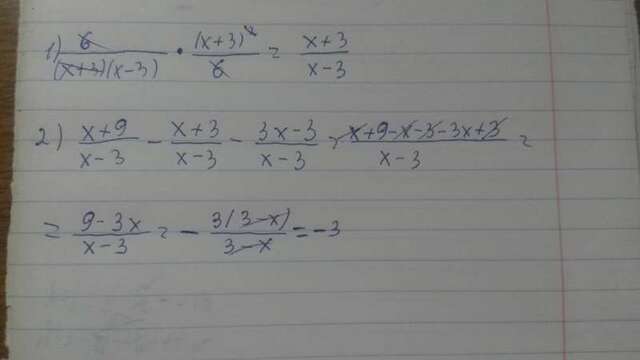 1) 6/((x+3)(x-3)) · (x+3)²/6 = (x+3)/(x-3)
2) (x+9)/(x-3) - (x+3)/(x-3) - (3x-3)/(x-3) = (x+9-x-3-3x+3)/(x-3) =
= (9-3x)/(x-3) = - 3(3-x)/(3-x) = -3